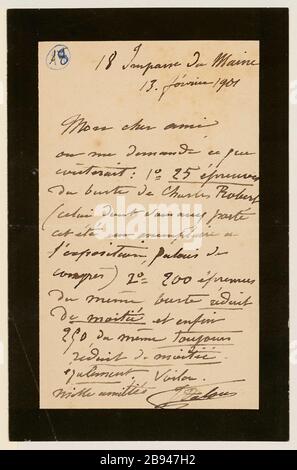 18
18 Impasse du Maine
13. février 1901
Mon cher ami
on me demande ce que
couterait : 1º 25 épreuves
du buste de Charles Robert
(celui dont j'avais porté
cet été un exemplaire à
l'exposition, palais des
congres) 2º 200 épreuves
du même buste réduit
de moitié et enfin
250 du même toujours
réduit de moitié
également Voilà.
mille amitiés JDalou
alamy
Image ID: 2B947H2
www.alamy.com